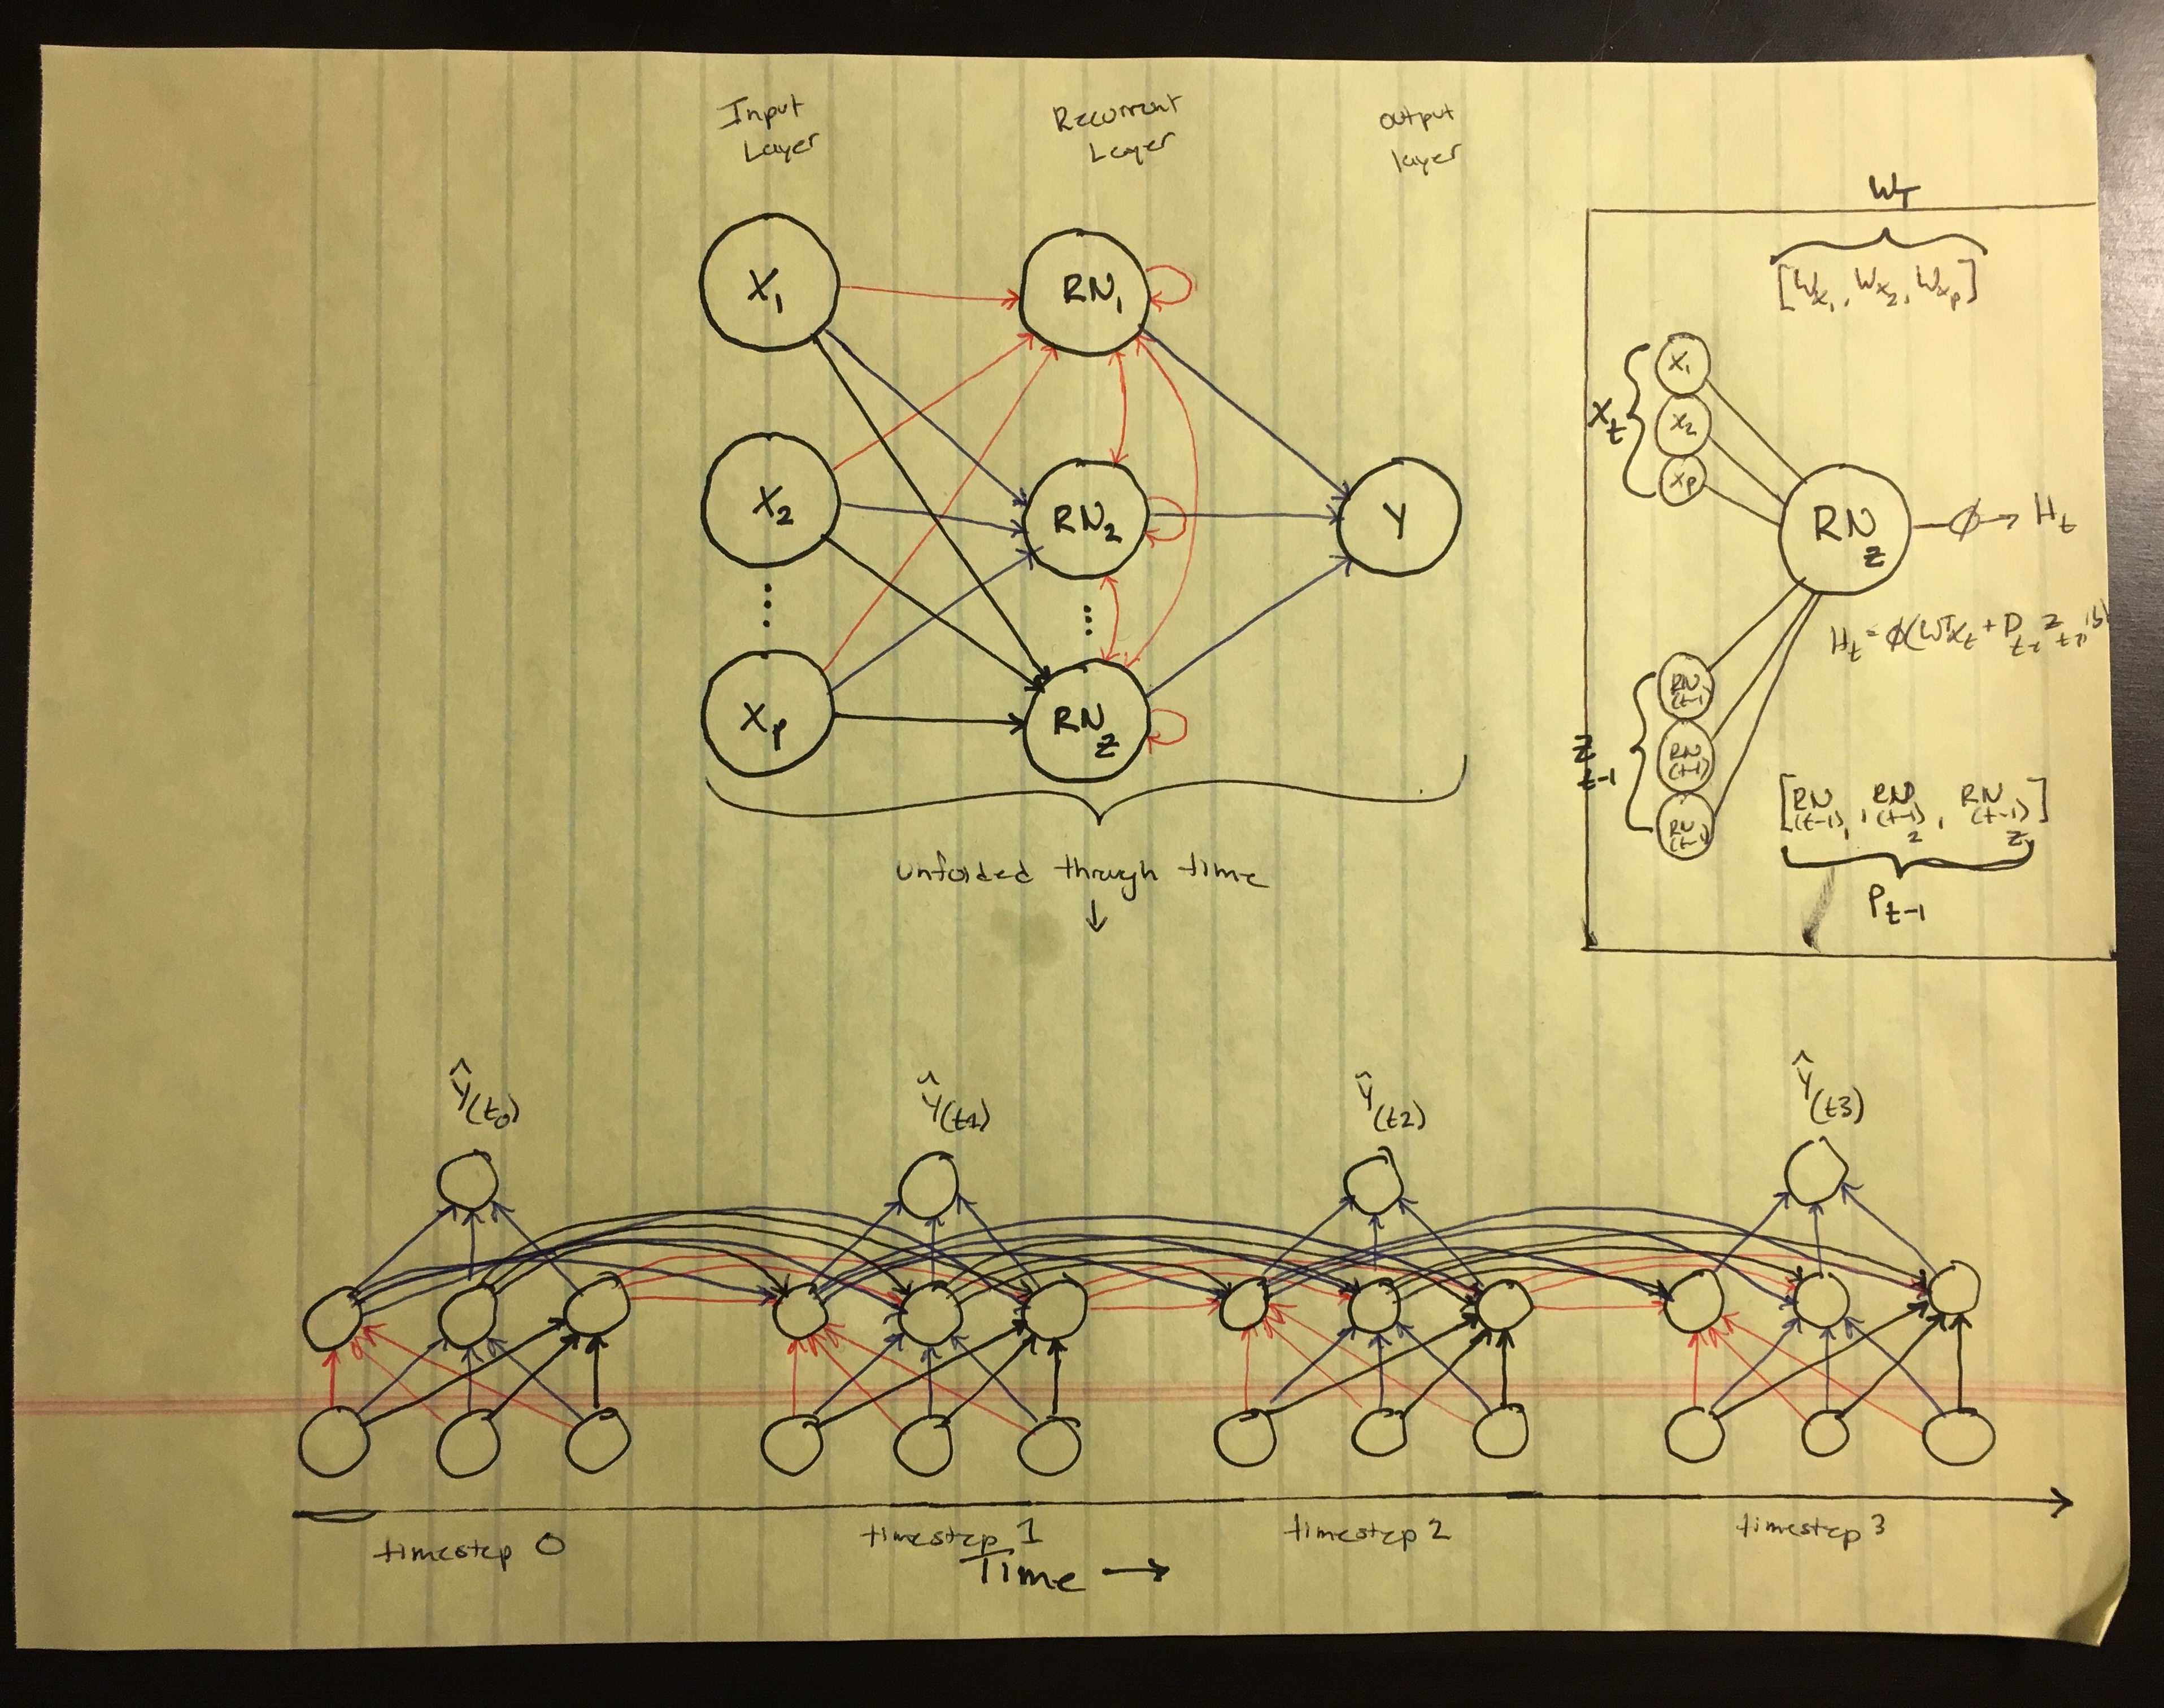 Input
Layer
Recurrent
Layer
output
layer
X₁
RN₁
X₂
RN₂
Y
Xp
RN_z
unfolded through time
↓
W_T
[W_x₁, W_x₂, W_xp]
X_t
X₁
X₂
Xp
RN_z
ϕ → H_t
Z_t-1
RN (t-1)
RN (t-1)
RN (t-1)
[RN(t-1)₁, RN(t-1)₂, RN(t-1)z]
P_t-1
Ŷ(t0)
Ŷ(t1)
Ŷ(t2)
Ŷ(t3)
timestep 0
timestep 1
timestep 2
timestep 3
Time →